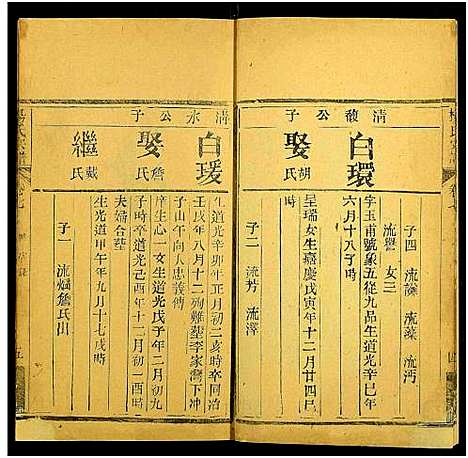 清馥公子
白環
字玉甫號象五從九品生道光辛巳年
六月十八子時
娶
胡氏
呈瑞女生嘉慶戊寅年十二月廿四巳
時
子四 流謙 流藻 流沔
流譽 女三
子二 流芳 流澤
清永公子
白瑗
生道光辛卯年正月初二亥時卒同治
壬戌年八月十二殉難塟李家灣下冲
子山午向人忠義傳
娶
詹氏
庠生心一女生道光戊子年二月初九
子時卒道光己酉年十一月初一酉時
夫婦合塟
繼
戴氏
生道光甲午年九月十七戌時
子一 流燏詹氏出
五